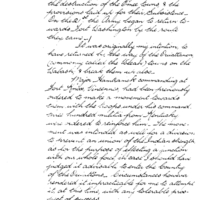 the destruction of the Ouse towns & the
provisions laid up for their subsistence.
On the 21st the Army began to return to-
wards Fort Washington by the route
they came.
It was originally my intention to
have returned by the way of the
(commonly called the Weah) towns on the
Wabash, & break them up also.
Major Hamtramck commanding at
Fort Knox Vincennes, had been previously
ordered to make a movement towards
them with the troops under his command
hundred militia from Kentucky
were ordered to reinforce him. The move-
ment was intended as well for a diversion
to prevent an union of the Indian strength
as for the purpose of effecting a junction
with our whole force in case I should have
judged it advisable to risk the enmity
of the Circumstances however
rendered it impracticable for me to attempt
it at this time with any tolerable pros-
pect of success